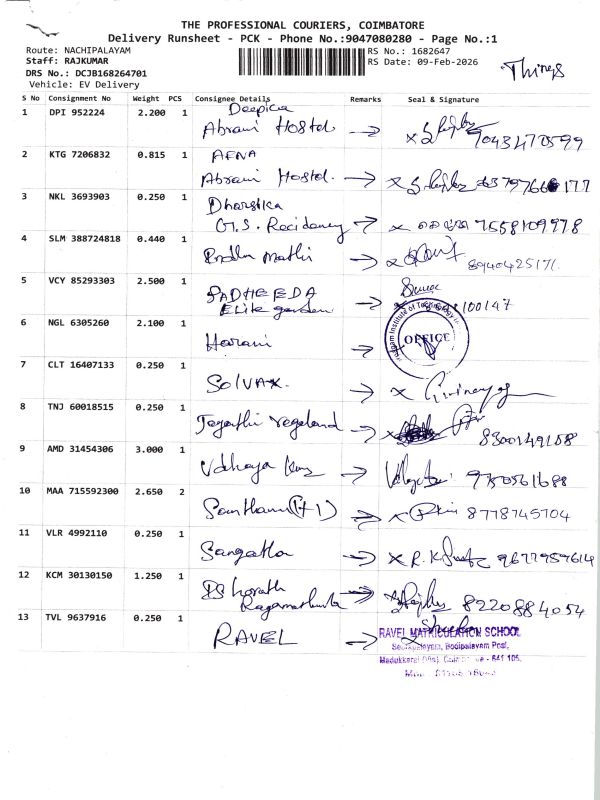 THE PROFESSIONAL COURIERS, COIMBATORE
Delivery Runsheet - PCK - Phone No.:9047080280 - Page No.:1
Route: NACHIPALAYAM
RS No.: 1682647
Staff: RAJKUMAR
RS Date: 09-Feb-2026
DRS No.: DCJB168264701
Vehicle: EV Delivery
Things
S No Consignment No Weight PCS Consignee Details Remarks Seal & Signature
1 DPI 952224 2.200 1 Deepica
Abrami Hostel 9043470599
2 KTG 7206832 0.815 1 AFNA
Abrami Hostel.
3 NKL 3693903 0.250 1 Dharstica
G.S. Recidency 7558109978
4 SLM 388724818 0.440 1 Mathi
8940425171.
5 VCY 85293303 2.500 1 SADHEEDA
Elite garden 100147
6 NGL 6305260 2.100 1 Harani
Institute of Technology
OFFICE
7 CLT 16407133 0.250 1 SOLVAX.
8 TNJ 60018515 0.250 1
8300149158
9 AMD 31454306 3.000 1 9750561688
10 MAA 715592300 2.650 2 (+1) 8778745704
11 VLR 4992110 0.250 1 Sangatha 9677957614
12 KCM 30130150 1.250 1 Bharath
8220884054
13 TVL 9637916 0.250 1 RAVEL
RAVEL MATRICULATION SCHOOL
Bodipalayam Post,
641 105.